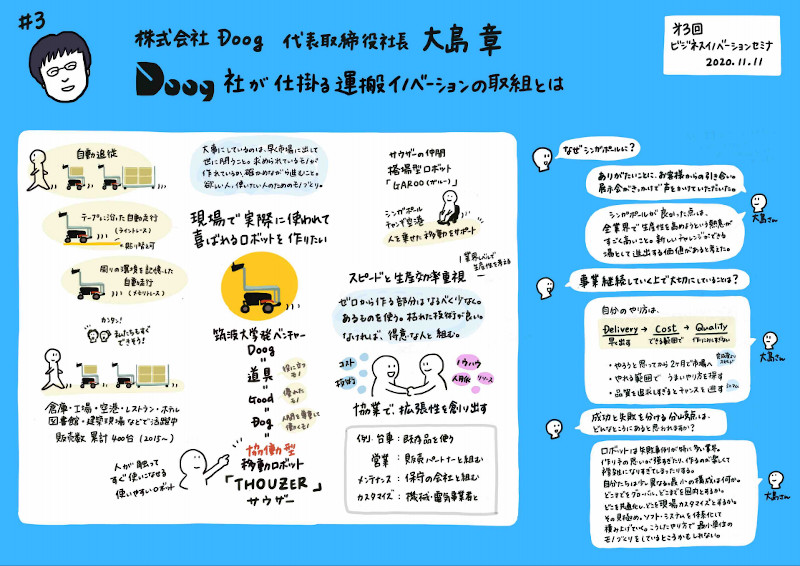 #3
株式会社 Doog 代表取締役社長 大島 章
Doog 社が仕掛る運搬イノベーションの取組とは
才3回
ビジネスイノベーションセミナ
2020.11.11
自動追従
テープに沿った自動走行
(ライントレース)
※貼り替え可
周りの環境を記憶した
自動走行
(メモリトレース)
カンタン!
私たちもすぐ
できそう!
倉庫・工場・空港・レストラン・ホテル
図書館・建築現場などで活躍中
販売数 累計400台 (2015~)
人が触って
すぐ使いになせる
使いやすいロボット
大事にしているのは、早く市場に出して
世に問うこと。求められているモノが
作れているか、確かめながら進むこと。
欲しい人、使いたい人のためのモノづくり。
現場で実際に使われて
喜ばれるロボットを作りたい
筑波大学発ベンチャー
Doog
=
道具
役に立つモノ
=
Good
優れたモノ
=
Dog
協働型
移動ロボット
「THOUZER」
サウザー
サウザーの仲間
搭乗型ロボット
「GAROO(ガルー)」
シンガポール
チャンギ空港
人を乗せた移動をサポート
スピードと生産効率重視
業界レベルで
生産性を考える
ゼロから作る部分はなるべく少なく。
あるものを使う。枯れた技術が良い。
なければ、得意な人と組む。
コスト
技術
ノウハウ
人脈
リソース
協業で拡張性を創り出す
例) 台車:既存品を使う
営業:販売パートナーと組む
メンテナンス:保守の会社と組む
カスタマイズ:機械・電気事業者と
なぜシンガポールに?
ありがたいことに、お客様からの引き合い。
展示会がきっかけで声をかけていただいた。
シンガポールが良かった点は、
全業界で生産性を高めようという熱意が
すごく高いこと。新しいチャレンジができる
場として進出する価値があると考えた。
大島さん
事業継続していく上で大切にしていることは?
自分のやり方は、
Delivery → Cost → Quality
早く出す できる範囲で 作りこみすぎない
・やろうと思ってから2ケ月で市場へ
・やれる範囲で うまいやり方を探す
・品質を追求しすぎるとチャンスを逃す
大島さん
成功と失敗を分ける分岐点は、
どんなところにあると思われますか?
ロボットは失敗事例が特に多い業界。
作り手の思いが強すぎたり、作るのが楽しくて
稀性になりすぎてしまったりする。
自分たちは少し異なる。最小の構成は何か。
どこまでをグローバル、どこまでを国内とするか。
どこを共通化し、どこを現場カスタマイズとするか。
その見極め。ソフト・システムを体系化して
積み上げていく。こうしたやり方で最小単位の
モノづくりをしているところかもしれない。
大島さん